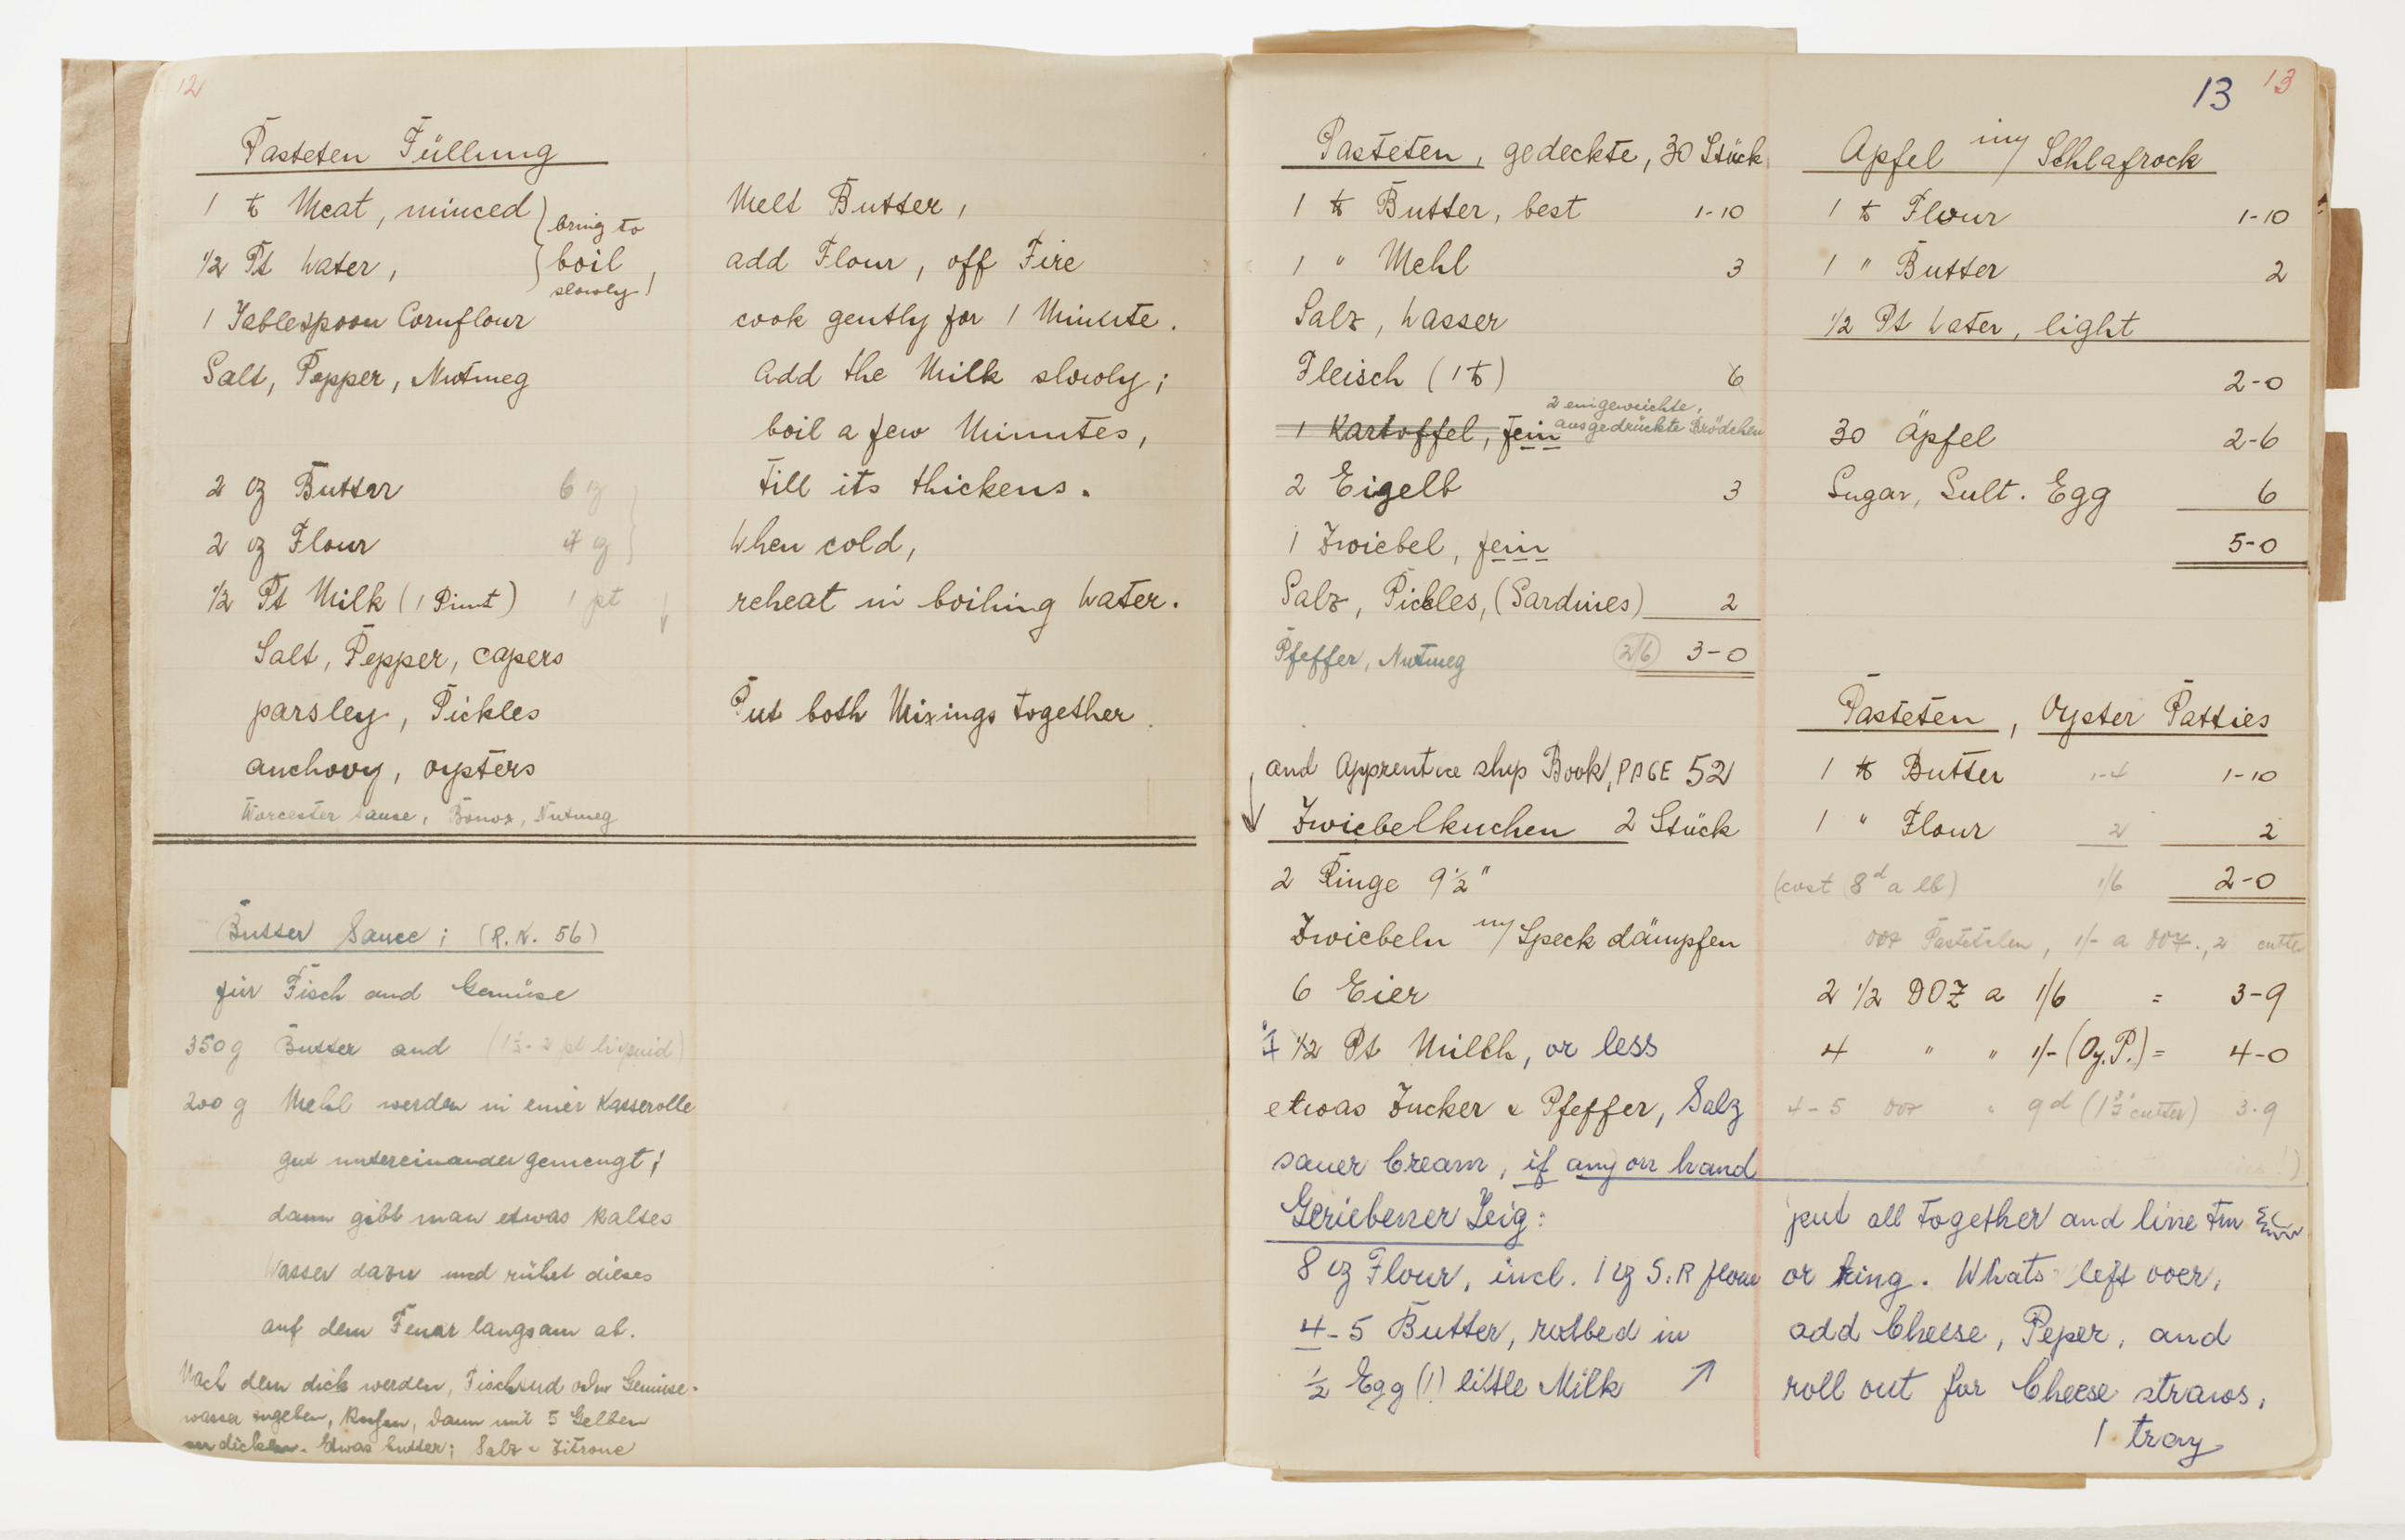 12
Pasteten Füllung
1 ℔ Meat, minced
1/2 Pt Water,
bring to
boil
slowly!
1 Tablespoon Cornflour
Salt, Pepper, Nutmeg
2 oz Butter 6 oz
2 oz Flour 4 oz
1/2 Pt Milk (1 Pint) 1 pt
Salt, Pepper, capers
parsley, Pickles
anchovy, oysters
Worcester Sause, Bonox, Nutmeg
Melt Butter,
add Flour, off Fire
cook gently for 1 Minute.
Add the Milk slowly;
boil a few Minutes,
till its thickens.
When cold,
reheat in boiling Water.
Put both Mixings together.
Butter Sauce; (R.K. 56)
für Fisch and Gemüse
350 g Butter and (1½-2 pt liquid)
200 g Mehl werden in einer Kasserolle
gut untereinander gemengt;
dann gibt man etwas kaltes
Wasser dazu und rührt dieses
auf dem Feuer langsam ab.
Nach dem dick werden, Fischsud oder Gemüse-
wasser zugeben, dann mit 5 Gelben
verdicken. Etwas butter; Salz - Zitrone
13 13
Pasteten, gedeckte, 30 Stück
1 ℔ Butter, best 1-10
1 " Mehl 3
Salz, Wasser
Fleisch (1 ℔) 6
2 eingeweichte,
ausgedrückte Brödchen
1 Kartoffel, fein
2 Eigelb 3
1 Zwiebel, fein
Salz, Pickles, (Sardines) 2
Pfeffer, Nutmeg 2/6 3-0
and Apprentice ship Book, PAGE 52
Zwiebelkuchen 2 Stück
2 Ringe 9½"
Zwiebeln m/ Speck dämpfen
6 Eier
1/2 Pt Milch, or less
etwas Zucker & Pfeffer, Salz
sauer Cream, if any on hand
Geriebener Teig:
8 oz Flour, incl. 1 oz S.R flour
4-5 Butter, rubbed in
½ Egg (1) little Milk ↗
Apfel im/ Schlafrock
1 ℔ Flour 1-10
1 " Butter 2
1/2 Pt Water, light
2-0
30 Äpfel 2-6
Sugar, Sult. Egg 6
5-0
Pasteten, Oyster Patties
1 ℔ Butter 1-4 1-10
1 " Flour 2 2
(cost 8d a lb) 1/6 2-0
doz Pastetelen, 1/- a doz., 2 cutter
2 1/2 DOZ a 1/6 = 3-9
4 " " 1/- (Oy. P.) = 4-0
4-5 doz " 9d (1½" cutter) 3-9
put all together and line tin
or Ring. Whats left over,
add Cheese, Peper, and
roll out for Cheese straws,
1 tray